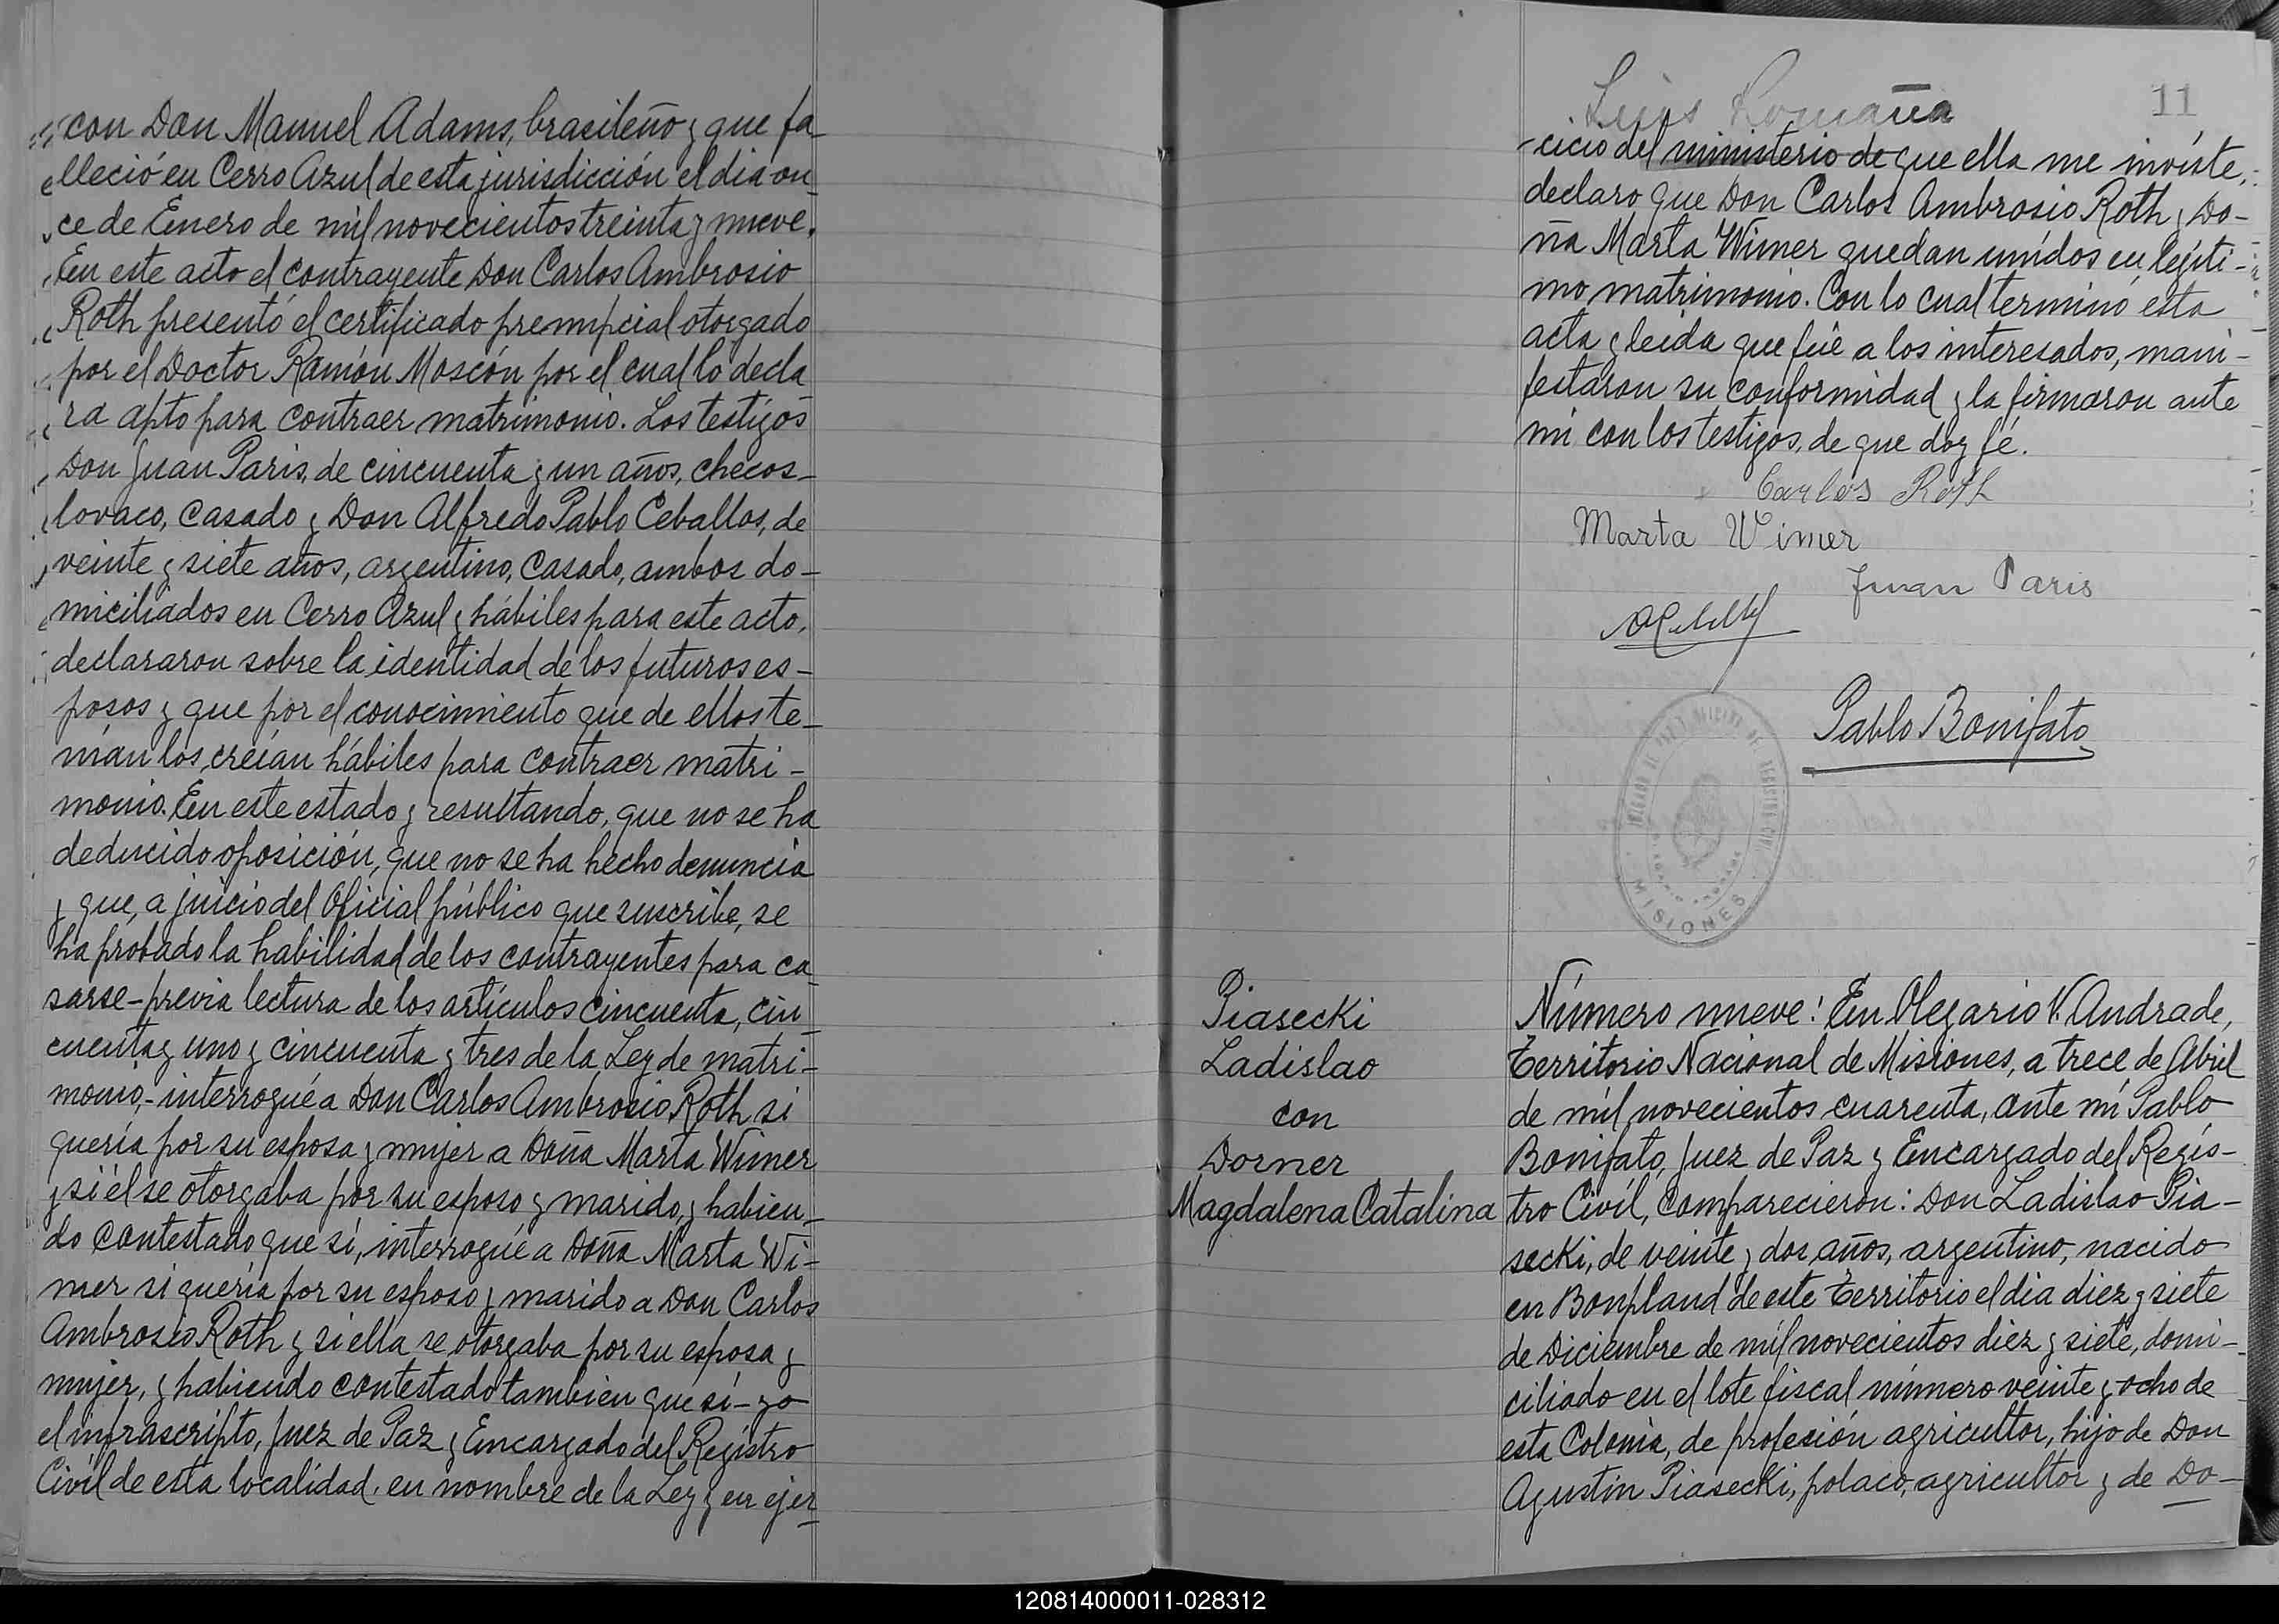 con Don Manuel Adams, brasileño y que fa-
lleció en Cerro Azul de esta jurisdicción el dia on-
ce de Enero de mil novecientos treinta y nueve.
En este acto el contrayente Don Carlos Ambrosio
Roth presentó el certificado prenupcial otorgado
por el Doctor Ramón Moscón por el cual lo decla
ra apto para contraer matrimonio. Los testigos
Don Juan Paris, de cincuenta y un años, checos-
lovaco, casado y Don Alfredo Pablo Ceballos, de
veinte y siete años, argentino, casado, ambos do-
miciliados en Cerro Azul y hábiles para este acto,
declararon sobre la identidad de los futuros es-
posos y que por el conocimiento que de ellos te-
nían los creían hábiles para contraer matri-
monio. En este estado y resultando, que no se ha
deducido oposición, que no se ha hecho denuncia
y que, a juicio del Oficial público que suscribe, se
ha probado la habilidad de los contrayentes para ca-
sarse-previa lectura de los artículos cincuenta, cin-
cuenta y uno y cincuenta y tres de la Ley de matri-
monio,- interrogué a Don Carlos Ambrosio Roth si
quería por su esposa y mujer a Doña Marta Wimer
y si él se otorgaba por su esposo y marido, y habien-
do contestado que sí, interrogué a Doña Marta Wi-
mer si quería por su esposo y marido a Don Carlos
Ambrosio Roth y si ella se otorgaba por su esposa y
mujer, y habiendo contestado tambien que sí - yo
el infrascripto, Juez de Paz y Encargado del Registro
Civil de esta localidad, en nombre de la Ley y en ejer-
Luis Romaña
11
-cicio del ministerio de que ella me inviste,
declaro que Don Carlos Ambrosio Roth y Do-
ña Marta Wimer quedan unidos en legíti-
mo matrimonio. Con lo cual terminó esta
acta y leida que fué a los interesados, mani-
festaron su conformidad y la firmaron ante
mi con los testigos, de que doy fé.
Carlos Roth
Marta Wimer
Juan Paris
Pablo Bonifato
JUZGADO DE PAZ Y OFICINA DE REGISTRO CIVIL
MISIONES
Piasecki
Ladislao
con
Dorner
Magdalena Catalina
Número nueve: En Olegario V. Andrade,
Territorio Nacional de Misiones, a trece de Abril
de mil novecientos cuarenta, ante mí Pablo
Bonifato, Juez de Paz y Encargado del Regis-
tro Civil, comparecieron: Don Ladislao Pia-
secki, de veinte y dos años, argentino, nacido
en Bonpland de este Territorio el dia diez y siete
de Diciembre de mil novecientos diez y siete, domi-
ciliado en el lote fiscal número veinte y ocho de
esta Colonia, de profesión agricultor, hijo de Don
Agustin Piasecki, polaco, agricultor y de Do-
120814000011-028312